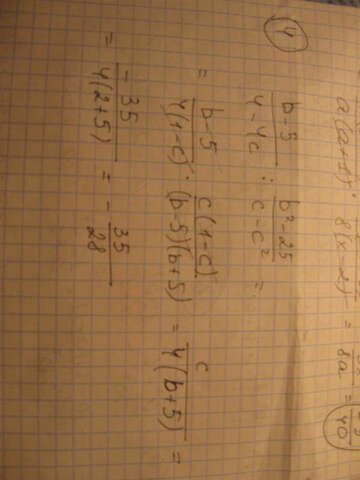 (b-5)/(4-4c) : (b²-25)/(c-c²) =
= (b-5)/(4(1-c)) · (c(1-c))/((b-5)(b+5)) = c/(4(b+5)) =
= (-35)/(4(2+5)) = - 35/28